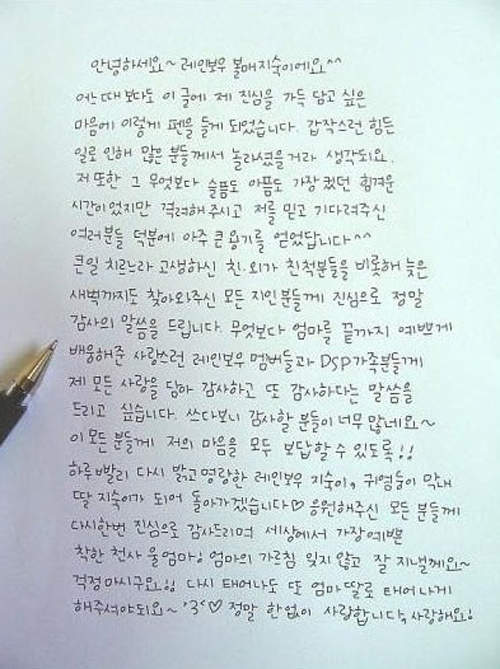 안녕하세요~ 레인보우 볼매지숙이에요^^
어느때 보다도 이 글에 제 진심을 가득 담고 싶은
마음에 이렇게 펜을 들게 되었습니다. 갑작스런 힘든
일로 인해 많은 분들께서 놀라셨을거라 생각되요.
저 또한 그 무엇보다 슬픔도 아픔도 가장 컸던 힘겨운
시간이었지만 격려해 주시고 저를 믿고 기다려주신
여러분들 덕분에 아주 큰 용기를 얻었답니다^^
큰일 치르느라 고생하신 친.외가 친척분들을 비롯해 늦은
새벽까지도 찾아와주신 모든 지인분들께 진심으로 정말
감사의 말씀을 드립니다. 무엇보다 엄마를 끝까지 예쁘게
배웅해준 사랑스런 레인보우 멤버들과 DSP가족분들께
제 모든 사랑을 담아 감사하고 또 감사하다는 말씀을
드리고 싶습니다. 쓰다보니 감사할 분들이 너무 많네요~
이 모든 분들께 저의 마음을 모두 보답할 수 있도록!!
하루빨리 다시 밝고 명랑한 레인보우 지숙이, 귀염둥이 막내
딸 지숙이가 되어 돌아가겠습니다♡ 응원해주신 모든 분들께
다시한번 진심으로 감사드리며 세상에서 가장 예쁜
착한 천사 울엄마! 엄마의 가르침 잊지 않고 잘 지낼께요~
걱정마시구요!! 다시 태어나도 또 엄마딸로 태어나게
해주셔야되요~ '3'<♡ 정말 한없이 사랑합니다, 사랑해요!